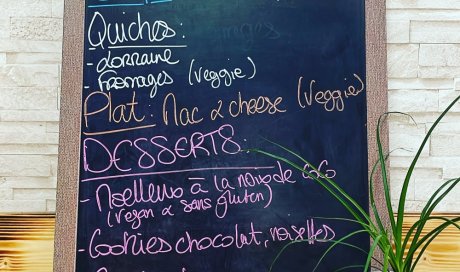 Quiches:
- Lorraine
- Fromages (veggie)
Plat: Mac & cheese (veggie)
DESSERTS:
- Moelleux à la noix de coco
(vegan & sans gluten)
- Cookies chocolat, noisettes